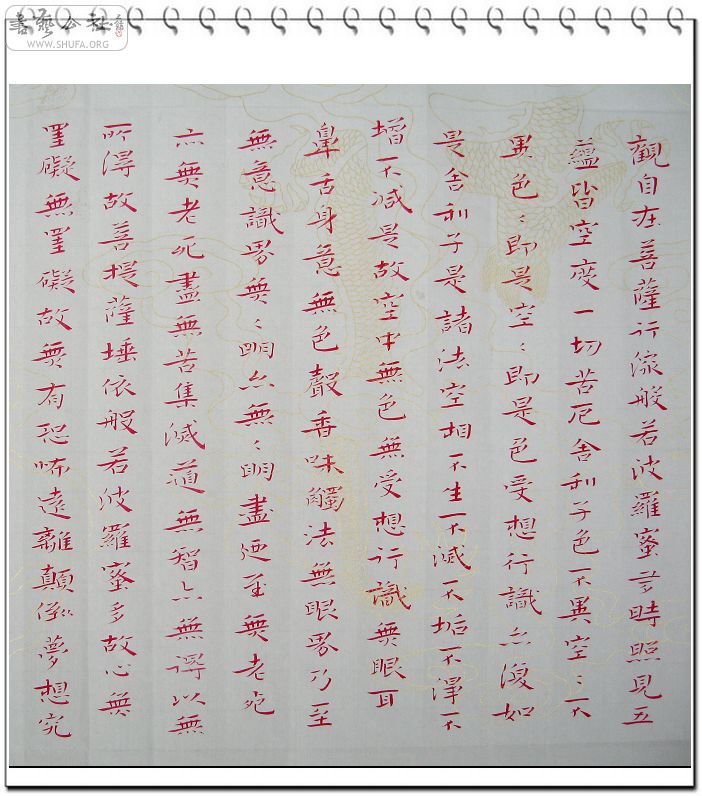 書藝公社
WWW.SHUFA.ORG
觀自在菩薩行深般若波羅蜜多時照見五
蘊皆空度一切苦厄舍利子色不異空〻不
異色〻即是空〻即是色受想行識亦復如
是舍利子是諸法空相不生不滅不垢不淨不
增不减是故空中無色無受想行識無眼耳
鼻舌身意無色聲香味觸法無眼界乃至
無意識界無〻明亦無〻明盡廼至無老死
亦無老死盡無苦集滅道無智亦無得以無
所得故菩提薩埵依般若波羅蜜多故心無
罣礙無罣礙故無有恐怖遠離顛倒夢想究